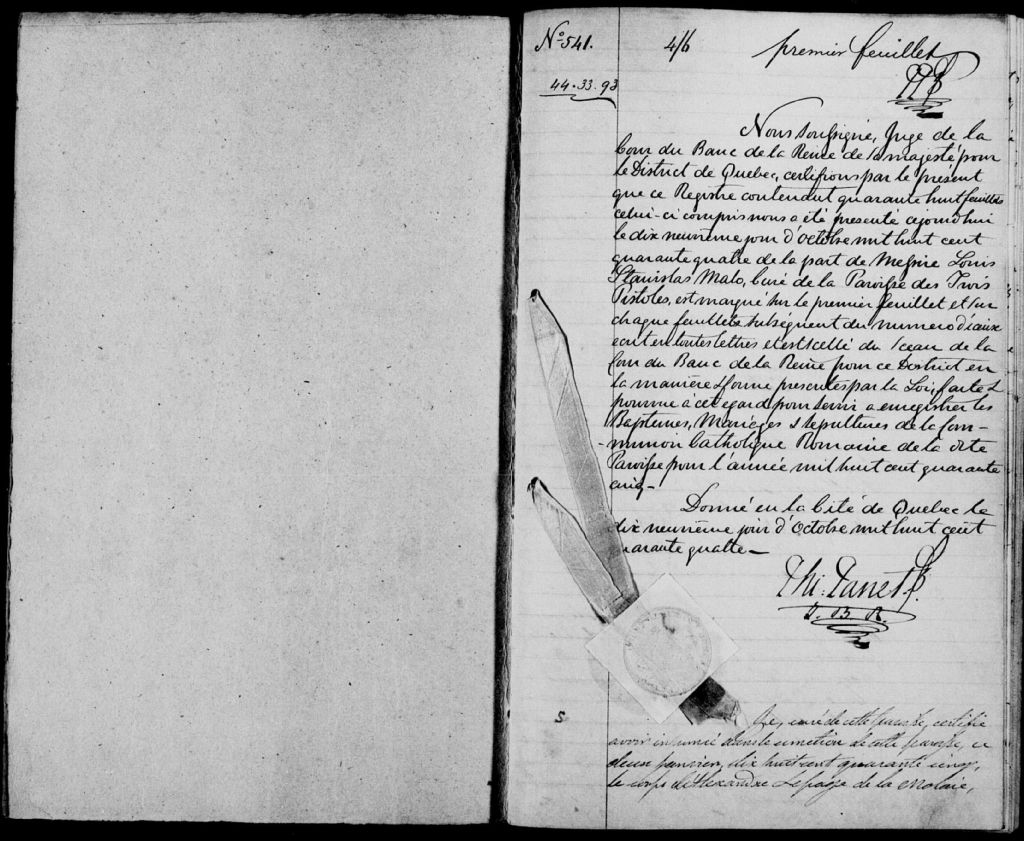 No 541. 4/6 premier feuillet
44.33.93
Nous soussigné, Juge de la
Cour du Banc de la Reine de Sa majesté pour
le District de Quebec, certifions par le présent
que ce Registre contenant quarante huit feuillets
celui-ci compris nous a été presenté cejourd'hui
le dix neuvième jour d'Octobre mil huit cent
quarante quatre de la part de Messire Louis
Stanislas Malo, Curé de la Paroisse des Trois
Pistoles, est marqué sur le premier feuillet et sur
chaque feuillets subséquent du numero d'iceux
écrit en toutes lettres et est scellé du sceau de la
Cour du Banc de la Reine pour ce District en
la manière & forme presentes par la Loi, faite &
pourvue à cet egard pour servir a enregistrer les
Baptemes, Mariages & sepultures de la Com-
-munion Catholique Romaine de la dite
Paroisse pour l'année mil huit cent quarante
cinq-
Donné en la Cité de Quebec le
dix neuvième jour d'Octobre mil huit cent
quarante quatre-
J. B. R.
S Je, curé de cette paroisse, certifie
avoir inhumé dans le cimetière de cette paroisse, ce
deux janvier, dix huit cent quarante cinq,
le corps d'Alexandre Lepage de la Molaie,